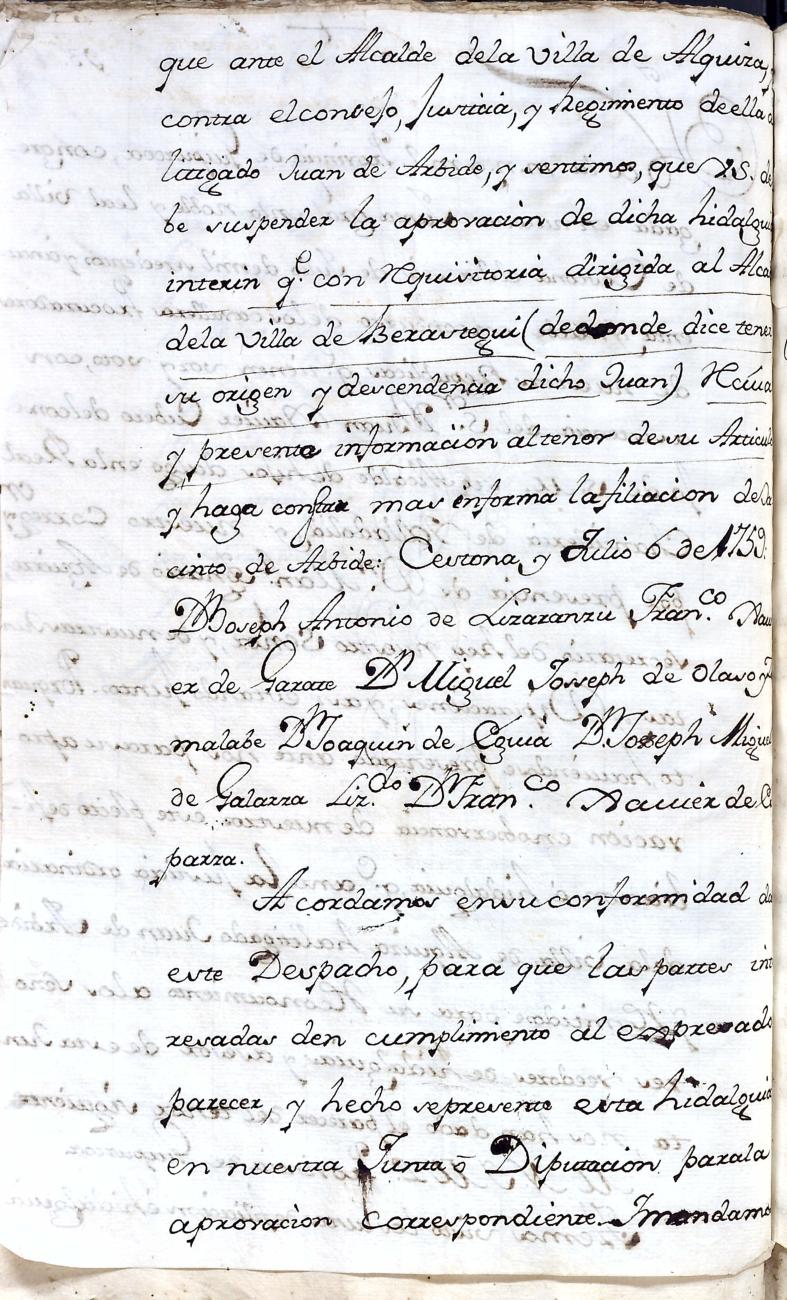 que ante el Alcalde dela villa de Alquiza,
contra elconsejo, Justicia, y Regimiento deella a
litigado Juan de Arbide, y sentimos, que V.S. de
be suspender la aprovación de dicha hidalgui
interin q.e con Requisitoria dirigida al Alca
dela Villa de Berastegui (dedonde dice tener
su origen y descendencia dicho Juan) Reciva
y presente información altenor desu Articulo
y haga constar mas informa lafiliacion deJa
cinto de Arbide: Cestona, y Julio 6 de 1759:
Dn Joseph Antonio de Lizaranzu Fran.co Xavi
er de Garate Dn Miguel Joseph de Olaso y
malabe Dn Joaquin de Eguia Dn Joseph Miguel
de Galarza Liz.do Dn Fran.co Xavier de E
parza.
Acordamos ensuconformidad da
este Despacho, para que las partes int
resadas den cumplimiento al expresado
parecer, y hecho sepresente esta hidalguia
en nuestra Junta ō Diputacion parala
aprovación correspondiente Imandamo